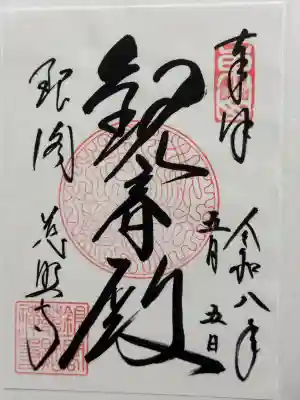 奉拝
令和八年
五月五日
観音殿
銀閣慈照寺